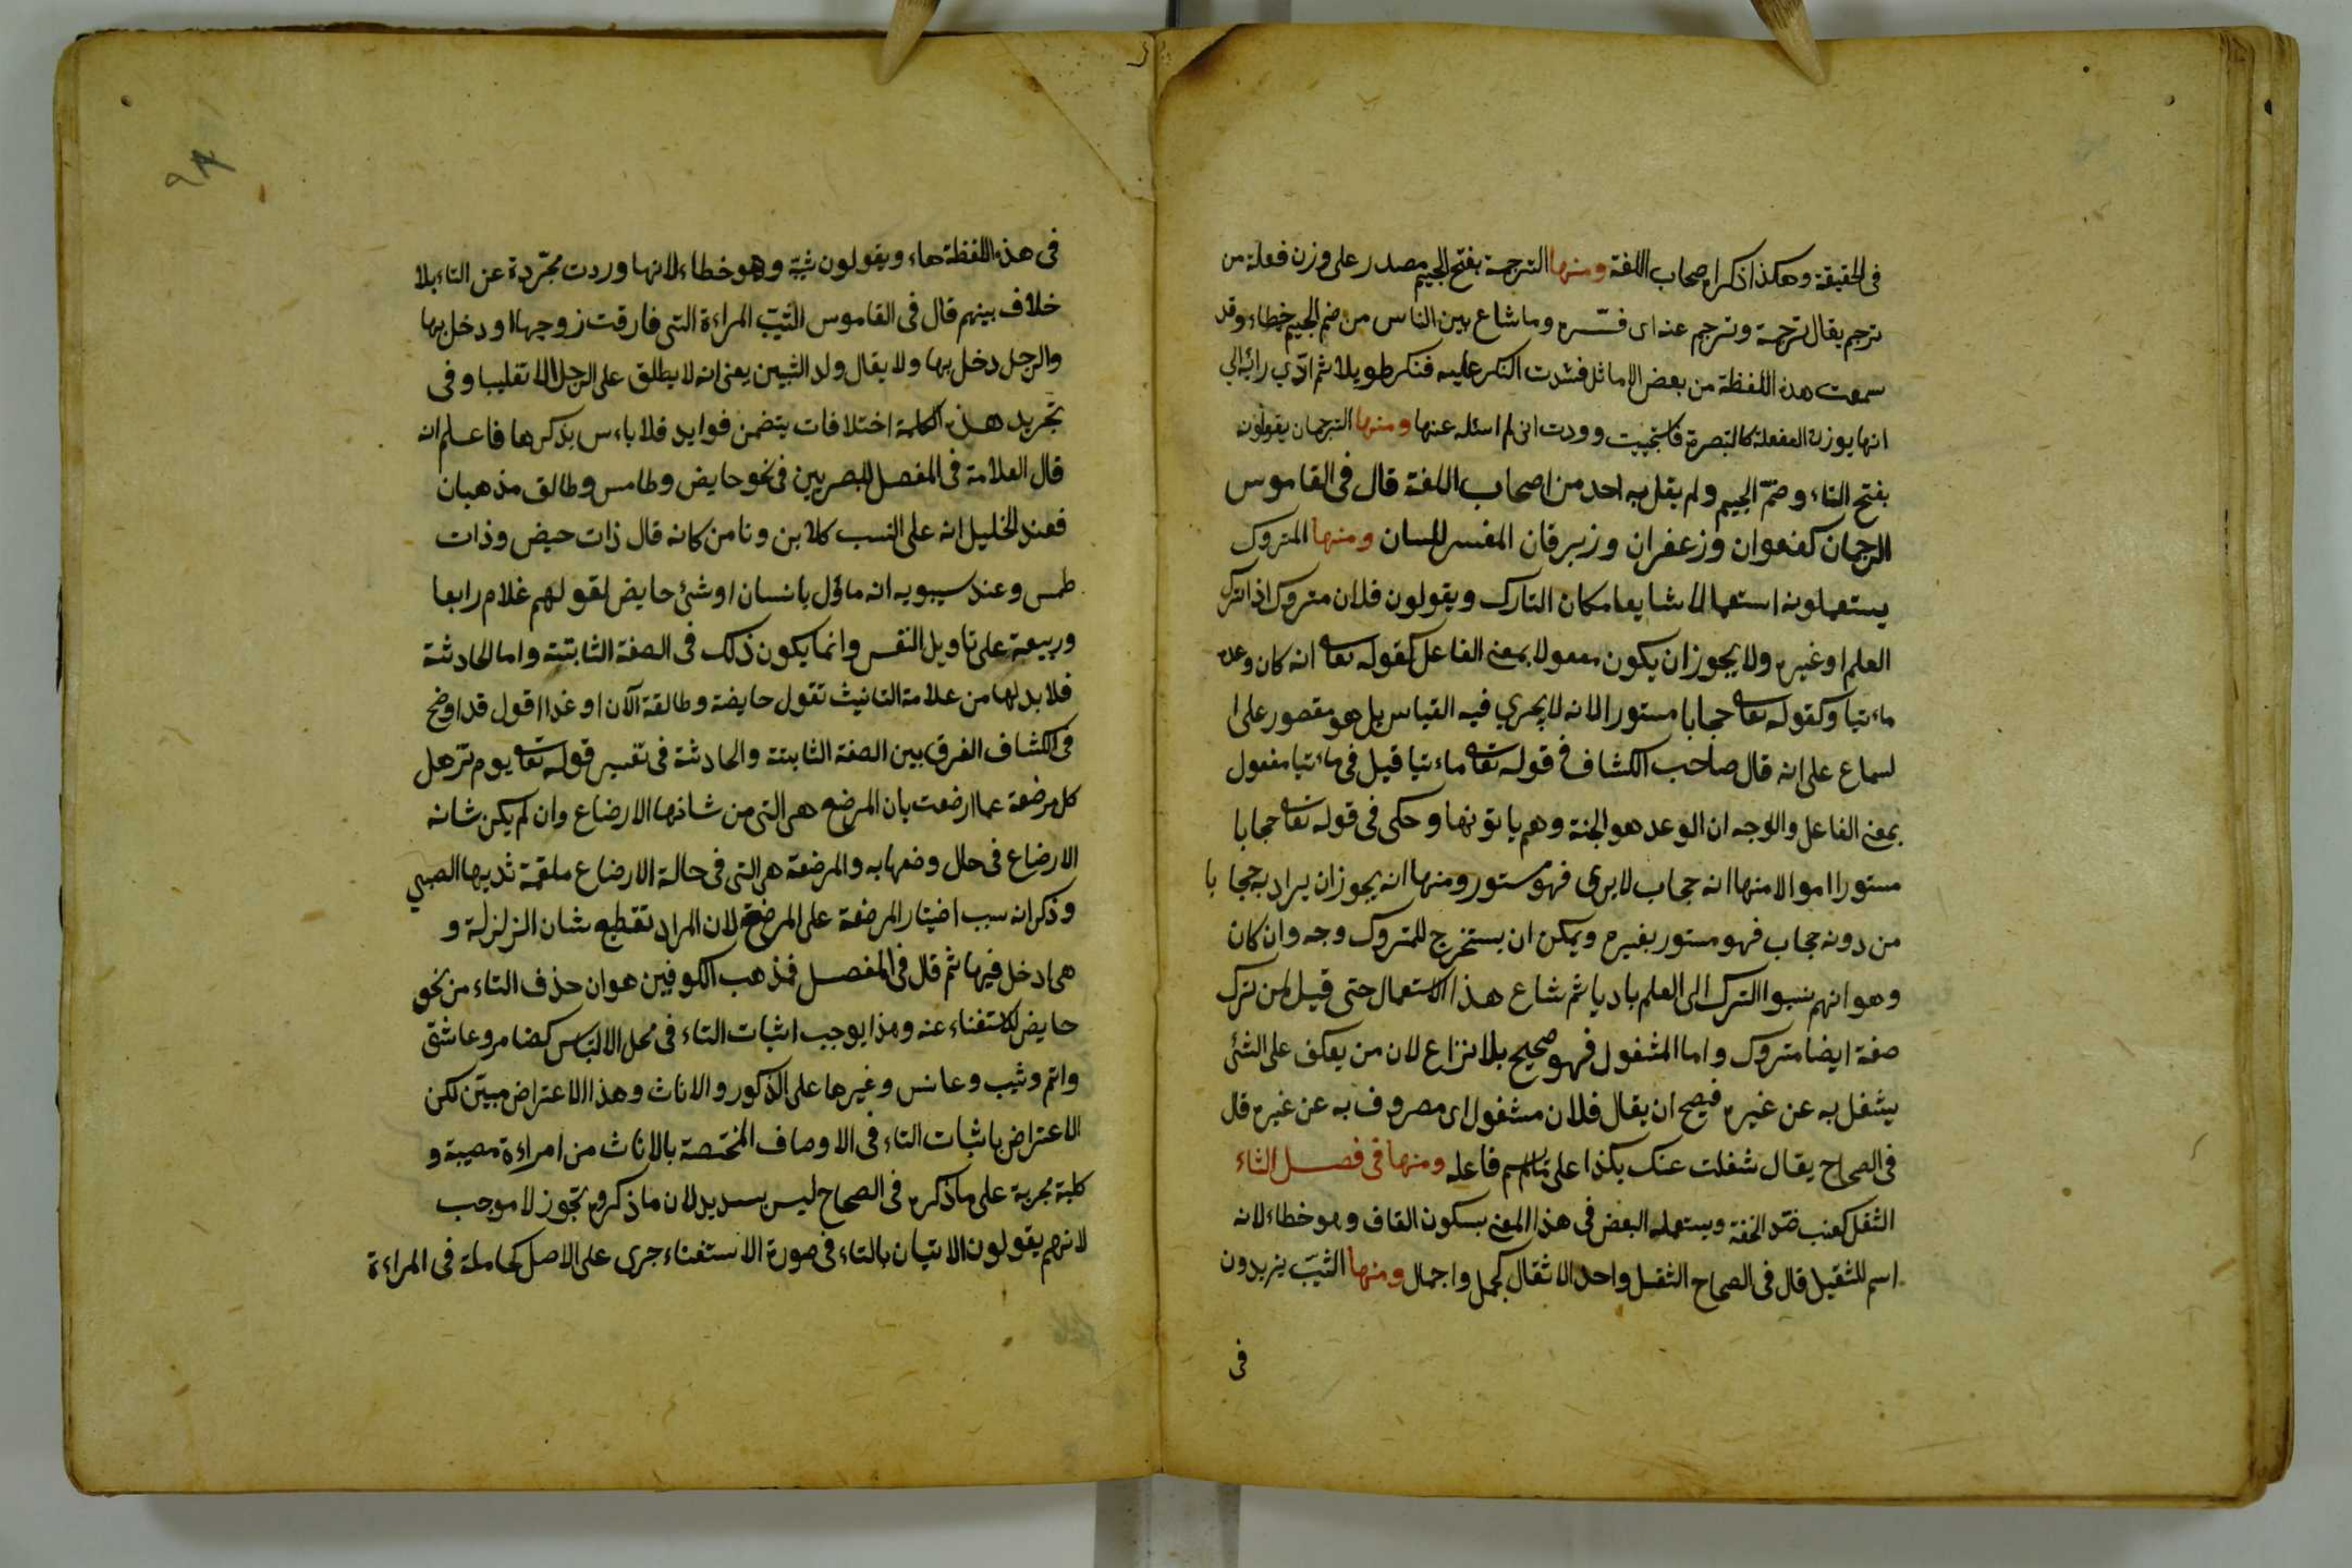 فى الحقيقة وهكذا ذكر اصحاب اللغة ومنها الترجمة بفتح الجيم مصدر على وزن فعللة من
ترجم يقال ترجمة وترجم عنه اى فسّره وما شاع بين الناس من ضم الجيم خطاء وقد
سمعت هذه اللفظة من بعض الاماثل فشددت النكر عليه فنكر طويلا ثم ادّي رائه الي
انها بوزن المفعلة كالتبصرة فاستحييت ووددت انى لم اسئله عنها ومنها الترجمان يقولون
بفتح التاء وضمّ الجيم ولم يقل به احد من اصحاب اللغة قال فى القاموس
الترجمان كعنفوان وزعفران وزبرقان المفسر للسان ومنها المتروك
يستعملونه استعمالا شايعا مكان التارك ويقولون فلان متروك اذا ترك
العلم او غيره ولا يجوز ان يكون مفعولا بمعنى الفاعل كقوله تعا انه كان وعده
ماءتيا وكقوله تعا حجابا مستورا لانه لا يجري فيه القياس بل هو مقصور على ا
لسماع على انه قال صاحب الكشاف فى قوله تعا ماءتيا قيل فى ماءتيا مفعول
بمعنى الفاعل والوجه ان الوعد هو الجنة وهم ياتونها وحكى فى قوله تعا حجابا
مستورا اموالا منها انه حجاب لا يرى فهو مستور ومنها انه يجوز ان يراد به حجا با
من دونه حجاب فهو مستور بغيره ويمكن ان يستخرج للمتروك وجه وان كان
وهو انهم نسبوا الترك الى العلم باديا ثم شاع هذا الاستعمال حتى قيل لمن ترك
صفة ايضا متروك واما المشغول فهو صحيح بلا نزاع لان من يعكف على الشئ
يشغل به عن غيره فيصح ان يقال فلان مشغول اى مصروف به عن غيره قال
فى الصحاح يقال شغلت عنك بكذا على ما لم يسم فاعله ومنها فى فصل الثاء
الثقل كعنب ضدّ الخفة ويستعمله البعض فى هذا المعنى بسكون القاف وهو خطاء لانه
اسم للثقيل قال فى الصحاح الثقل واحد الاثقال كحمل واحمال ومنها الثيّب يزيدون
فى
٩٨
فى هذه اللفظة هاء ويقولون ثيبة وهو خطاء لانها وردت مجرّدة عن التاء بلا
خلاف بينهم قال فى القاموس الثيّب المراءة التى فارقت زوجها او دخل بها
والرجل دخل بها ولا يقال ولد الثيبين يعنى انه لا يطلق على الرجل الا تغليبا وفى
تجريد هذه الكلمة اختلافات يتضمن فوايد فلا باءس بذكرها فاعلم انه
قال العلامة فى المفصل للبصريين فى نحو حايض وطامس وطالق مذهبان
فعند الخليل انه على النسب كلابن وتامر كانه قال ذات حيض وذات
طمس وعند سيبويه انه ماؤل بانسان او شئ حايض لقولهم غلام رابعا
وربيعة على تاويل النفس وانما يكون ذلك فى الصفة الثابتة واما الحادثة
فلا بد لها من علامة التانيث تقول حايضة وطالقة الآن او غدا اقول قد اوضح
فى الكشاف الفرق بين الصفة الثابتة والحادثة فى تفسير قوله تعا يوم تذهل
كل مرضعة عما ارضعت بان المرضع هى التى من شانها الارضاع وان لم يكن شانه
الارضاع فى حال وضعها به والمرضعة هى التى فى حالة الارضاع ملقمة ثديها الصبي
وذكر انه سبب اختيار المرضعة على المرضع لان المراد تفظيع شان الزلزلة و
هى ادخل فيها ثم قال فى المفصل فمذهب الكوفيين هو ان حذف التاء من نحو
حايض للاستغناء عنه وهذا يوجب اثبات التاء فى محل الالتباس كضامر وعاشق
وايم وثيب وعانس وغيرها على الذكور والاناث وهذا الاعتراض مبيّن لكن
الاعتراض باثبات التاء فى الاوصاف المختصة بالاناث من امراءة مصيبة و
كلبة مجرية على ما ذكره فى الصحاح ليس بسديد لان ما ذكروه تجوز لا موجب
لانهم يقولون الاتيان بالتاء فى صورة الاستغناء جرى على الاصل كحاملة فى المراءة